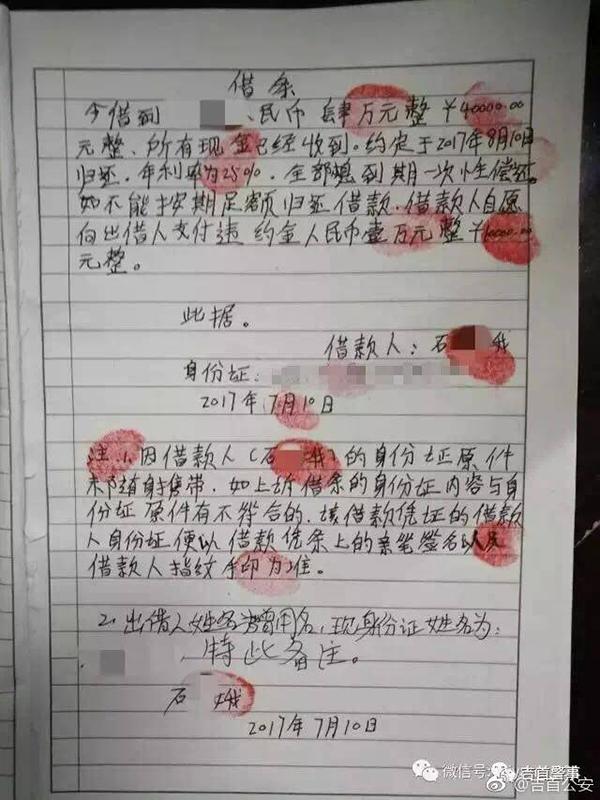 借条
今借到 民币 肆万元整 ￥40000.00
元整、所有现金已经收到。约定于2017年8月10日
归还,年利率为25%,全部息到期一次性偿还。
如不能按期足额归还借款,借款人自愿
向出借人支付违约金人民币壹万元整 ￥10000.00
元整。
此据。
借款人:石 娥
身份证:
2017年7月10日
注1、因借款人(石 娥)的身份证原件
未随身携带,如上诉借条的身份证内容与身
份证原件有不符合的,该借款凭证的借款
人身份证便以借款凭条上的亲笔签名以及
借款人指纹手印为准。
2、出借人姓名为曾用名,现身份证姓名为:
特此备注。
石 娥
2017年7月10日
微信号: 吉首警事
@吉首公安